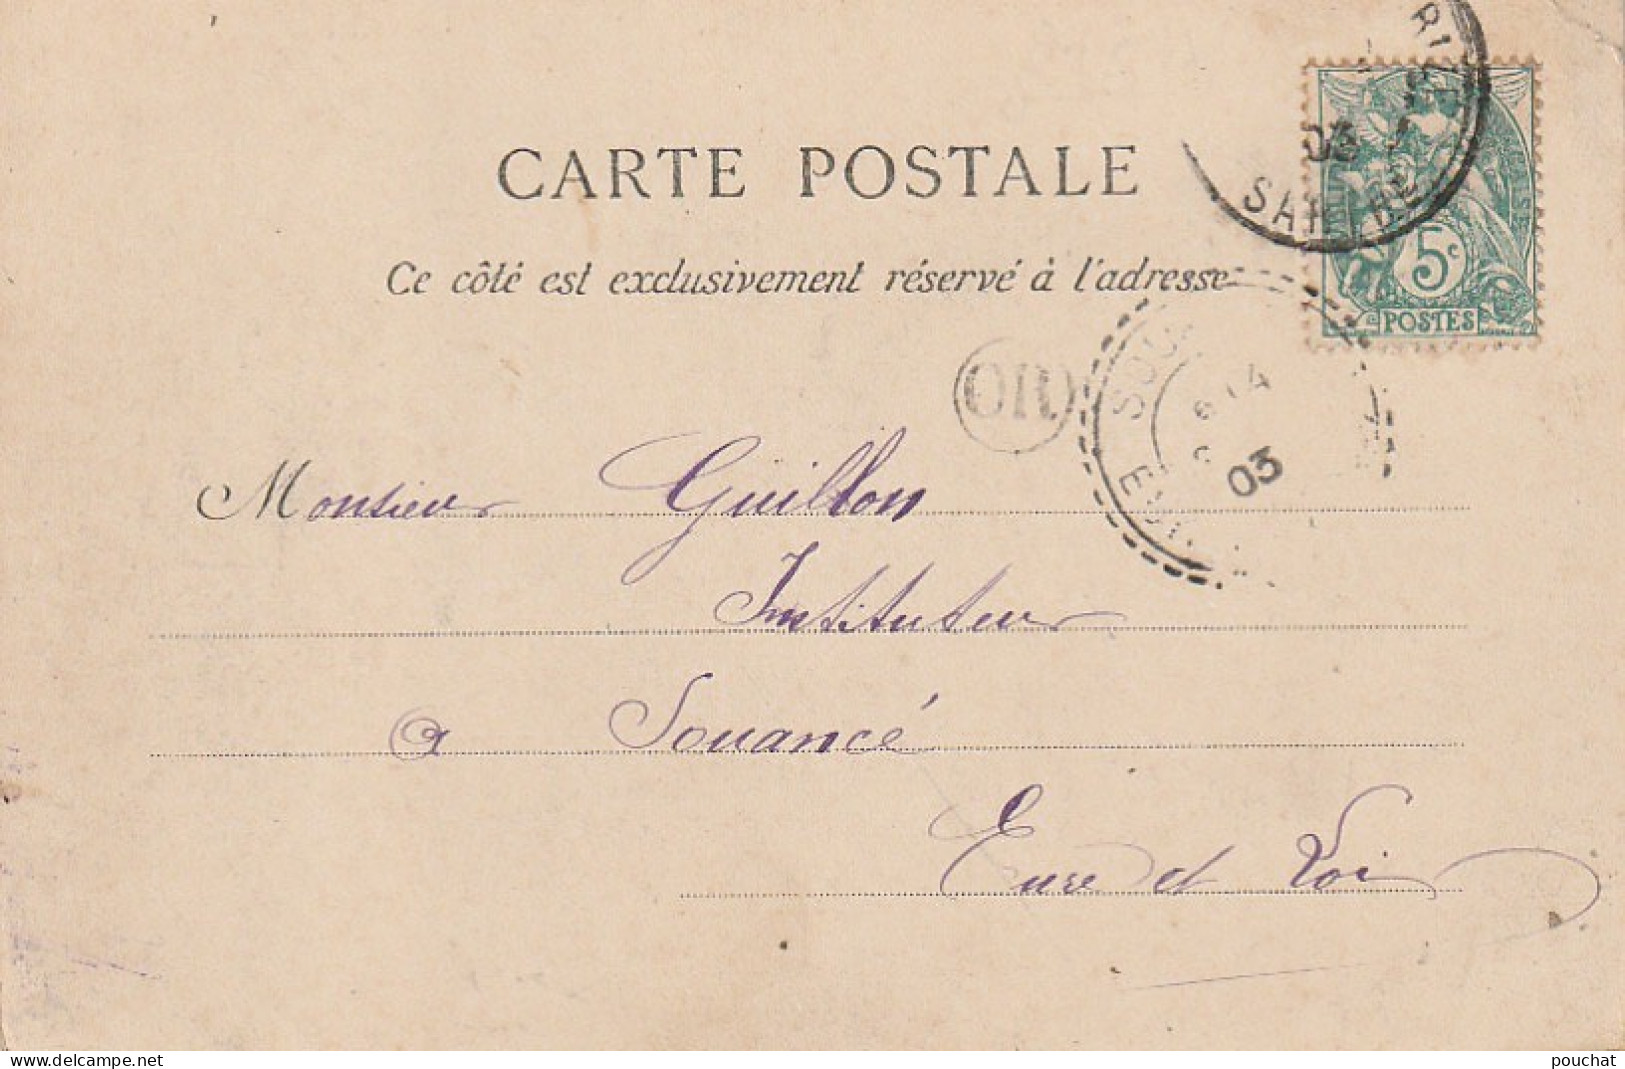 CARTE POSTALE
Ce côté est exclusivement réservé à l'adresse
03
5c
POSTES
OR
SOU
14
03
Monsieur Guillon
Instituteur
a Souancé
Eure et Loir
www.delcampe.net
pouchat